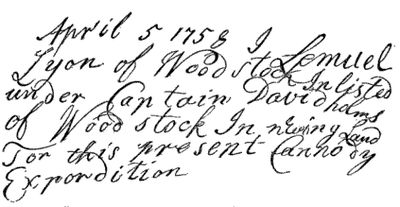 April 5 1758 I Lemuel
Lyon of Woodstock Inlisted
under Captain David hams
of Woodstock In newing Land
For this present Cannody
Expordition